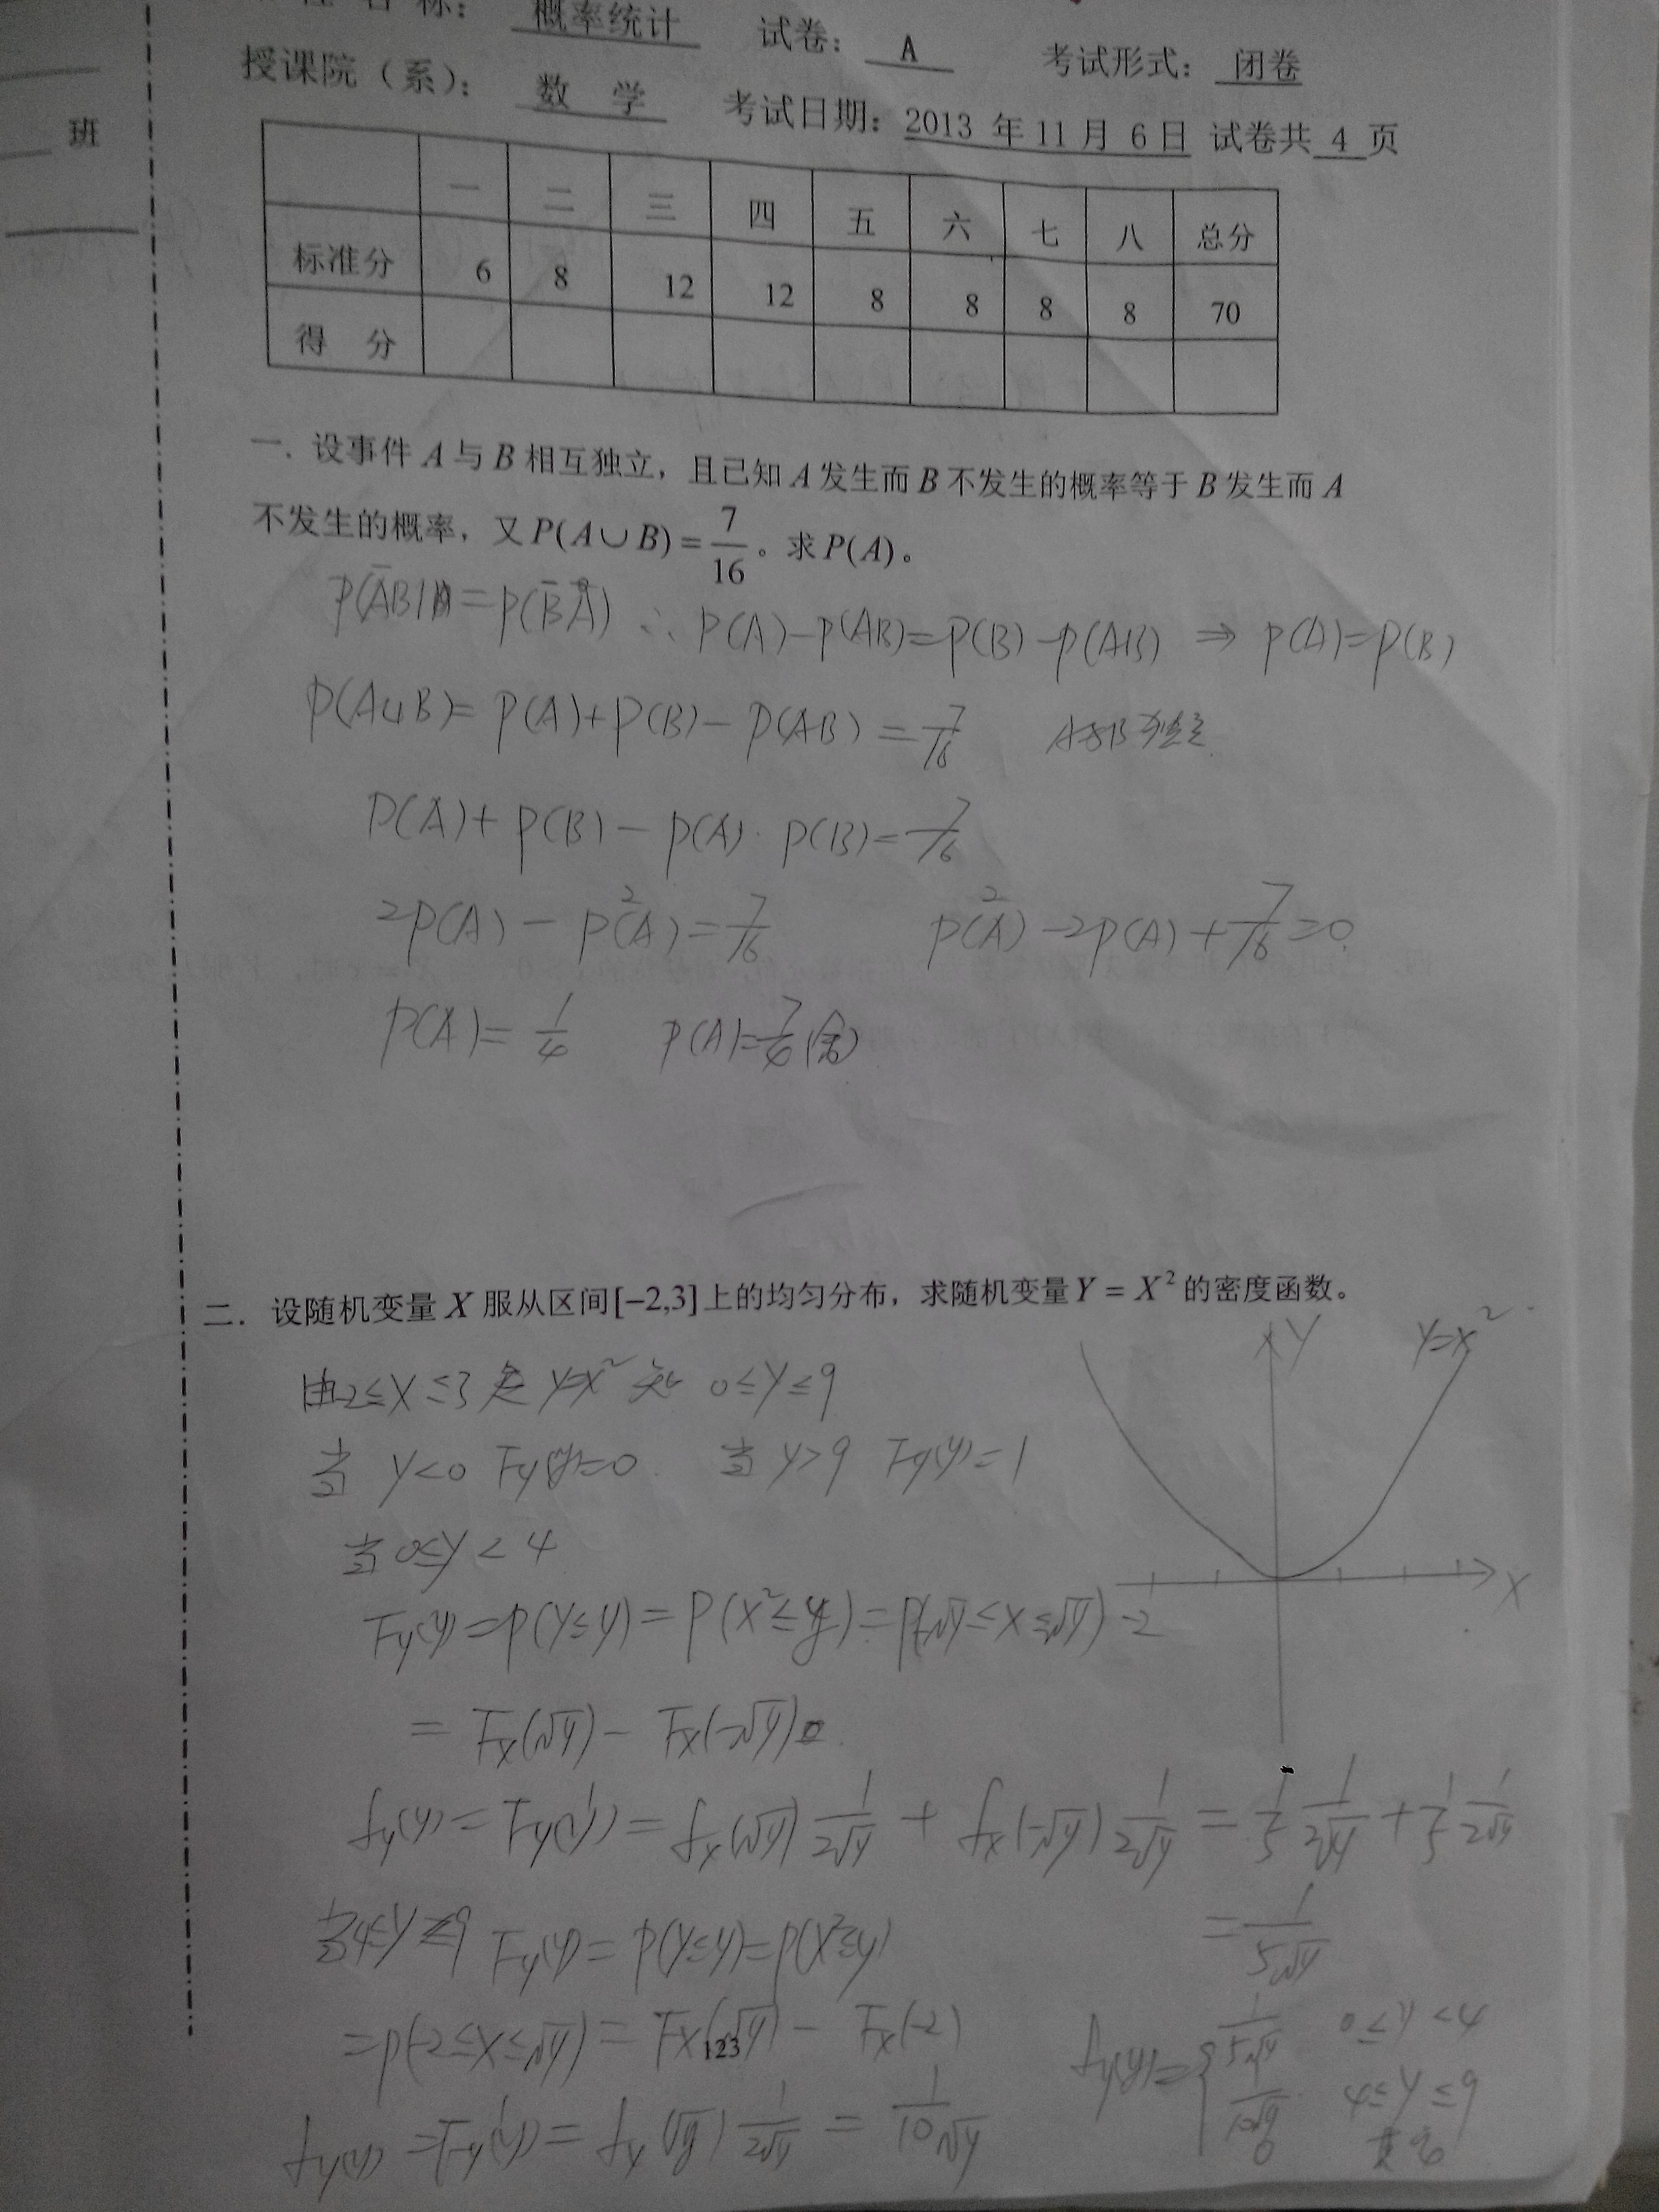 概率统计 试卷: A 考试形式: 闭卷
授课院（系）: 数 学 考试日期: 2013 年 11 月 6 日 试卷共 4 页
班
一 二 三 四 五 六 七 八 总分
标准分 6 8 12 12 8 8 8 8 70
得 分
一. 设事件 A 与 B 相互独立，且已知 A 发生而 B 不发生的概率等于 B 发生而 A
不发生的概率，又 P(A∪B)=7/16。求 P(A)。
∴ P(A)-P(AB)=P(B)-P(AB) ⇒ P(A)=P(B)
P(A∪B)= P(A)+P(B)-P(AB)=7/16 A与B独立
P(A)+P(B)-P(A)·P(B)=7/16
2P(A)-P²(A)=7/16 P²(A)-2P(A)+7/16=0
P(A)=1/4 P(A)=7/4(舍)
二. 设随机变量 X 服从区间[-2,3]上的均匀分布，求随机变量 Y = X² 的密度函数。
Y
y=x²
由-2≤X≤3 及 y=x² 知 0≤Y≤9
当 y<0 Fy(y)=0 当 y>9 Fy(y)=1
当 0≤y<4
X
-2
Fy(y)=P(Y≤y)=P(X²≤y)=P(-√y≤X≤√y)
= Fx(√y)-Fx(-√y)
fy(y)=Fy'(y)=fx(√y) 1/2√y + fx(-√y) 1/2√y = 1/5 1/2√y + 1/5 1/2√y
= 1/5√y
当4≤y≤9 Fy(y)=P(Y≤y)=P(X²≤y)
=P(-2≤X≤√y)=Fx(√y)-Fx(-2)
123
fy(y)=Fy'(y)=fx(√y) 1/2√y = 1/10√y
fy(y)={ 1/5√y 0≤y<4
1/10√y 4≤y≤9
0 其它